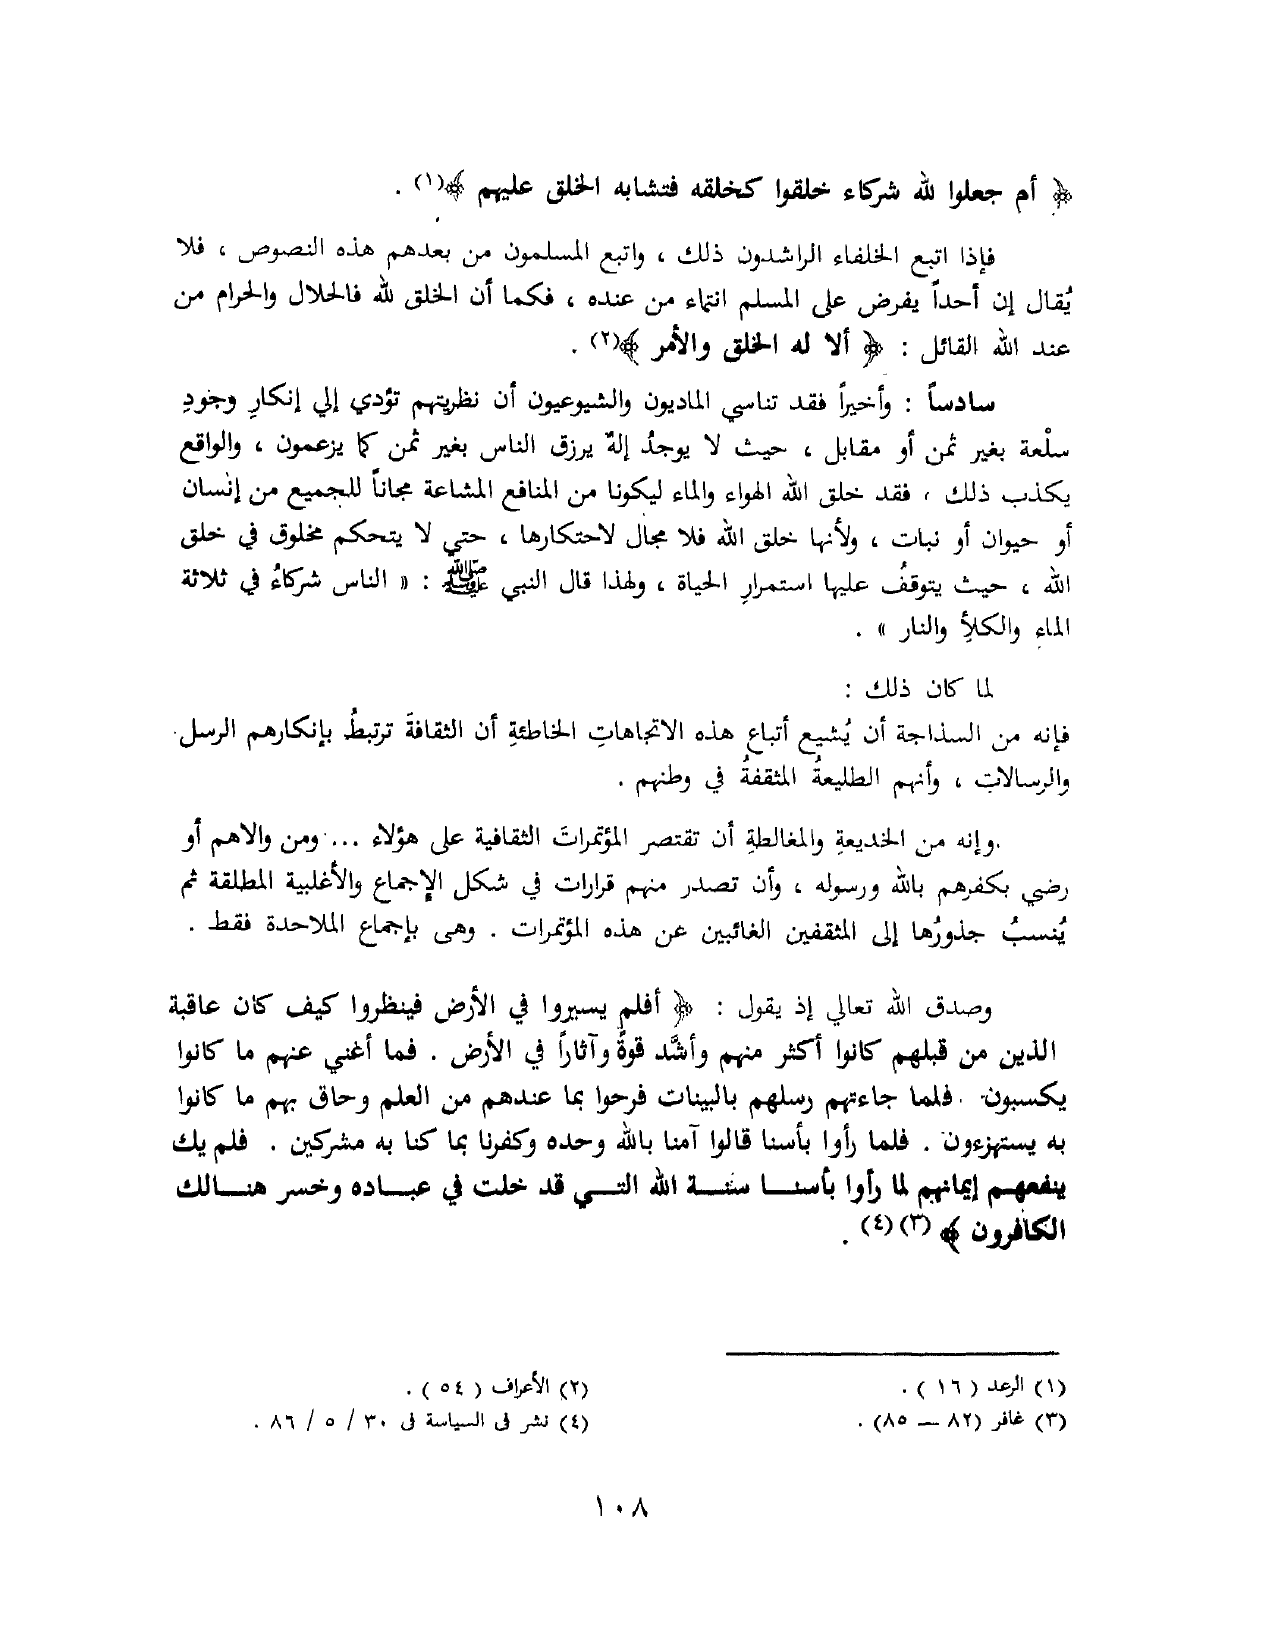 ﴿ أم جعلوا لله شركاء خلقوا كخلقه فتشابه الخلق عليهم ﴾(١) .
فإذا اتبع الخلفاء الراشدون ذلك ، واتبع المسلمون من بعدهم هذه النصوص ، فلا
يُقال إن أحداً يفرض على المسلم انتماء من عنده ، فكما أن الخلق لله فالحلال والحرام من
عند الله القائل : ﴿ ألا له الخلق والأمر ﴾(٢) .
سادساً : وأخيراً فقد تناسي الماديون والشيوعيون أن نظريتهم تؤدي إلي إنكارِ وجودِ
سلْعة بغير ثمن أو مقابل ، حيث لا يوجدُ إلهٌ يرزق الناس بغير ثمن كما يزعمون ، والواقع
يكذب ذلك ، فقد خلق الله الهواء والماء ليكونا من المنافع المشاعة مجاناً للجميع من إنسان
أو حيوان أو نبات ، ولأنها خلق الله فلا مجال لاحتكارها ، حتي لا يتحكم مخلوق في خلق
الله ، حيث يتوقفُ عليها استمرارِ الحياة ، ولهذا قال النبي ﷺ : « الناس شركاءُ في ثلاثة
الماءِ والكلأِ والنار » .
لما كان ذلك :
فإنه من السذاجة أن يُشيع أتباع هذه الاتجاهاتِ الخاطئةِ أن الثقافةَ ترتبطُ بإنكارهم الرسل
والرسالاتِ ، وأنهم الطليعةُ المثقفةُ في وطنهم .
وإنه من الخديعةِ والمغالطةِ أن تقتصر المؤتمراتَ الثقافية على هؤلاء ... ومن والاهم أو
رضي بكفرهم بالله ورسوله ، وأن تصدر منهم قرارات في شكل الإجماع والأغلبية المطلقة ثم
يُنسبُ جذورُها إلى المثقفين الغائبين عن هذه المؤتمرات . وهى بإجماع الملاحدة فقط .
وصدق الله تعالي إذ يقول : ﴿ أفلم يسيروا في الأرض فينظروا كيف كان عاقبة
الذين من قبلهم كانوا أكثر منهم وأشَّد قوةً وآثاراً في الأرض . فما أغني عنهم ما كانوا
يكسبون . فلما جاءتهم رسلهم بالبينات فرحوا بما عندهم من العلم وحاق بهم ما كانوا
به يستهزءون . فلما رأوا بأسنا قالوا آمنا بالله وحده وكفرنا بما كنا به مشركين . فلم يك
ينفعهم إيمانهم لما رأوا بأسنا سنة الله التي قد خلت في عباده وخسر هنالك
الكافرون ﴾ (٣)(٤) .
(١) الرعد ( ١٦ ) .
(٢) الأعراف ( ٥٤ ) .
(٣) غافر (٨٢ — ٨٥) .
(٤) نشر فى السياسة فى ٣٠ / ٥ / ٨٦ .
١٠٨